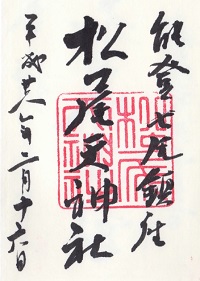 能登七尾鎮座
松尾天神社
平成廿八年二月十六日